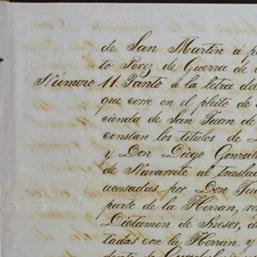 de San Martin á p
to Perez de Guerra de
Número 11. Tanto á la letra de
que corre en el pleito de
cienda de San Juan de
constan los titulos de
y Don Diego Gonzal
de Navarrete al traslad
acusadas por Don Jua
parte de la Herran, re
Dictamen de Asesor, d
tadas con la Herran, y